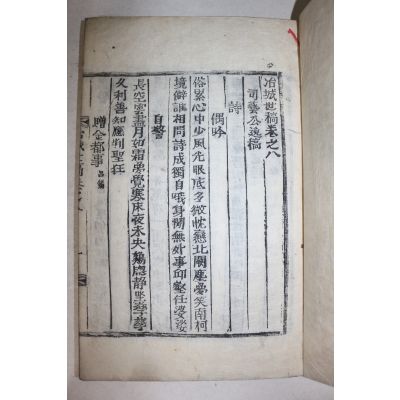 冶城世稿卷之八
司藝公逸稿
詩
偶吟
俗累心中少風光眼底多微忱戀北闕塵夢笑南柯
境僻誰相問詩成獨自哦身閑無外事邱壑任婆娑
自警
長空霽盡月如霜覺寒床夜未央鷄鳴靜坐孳孳
久利善知應判聖狂
贈金都事